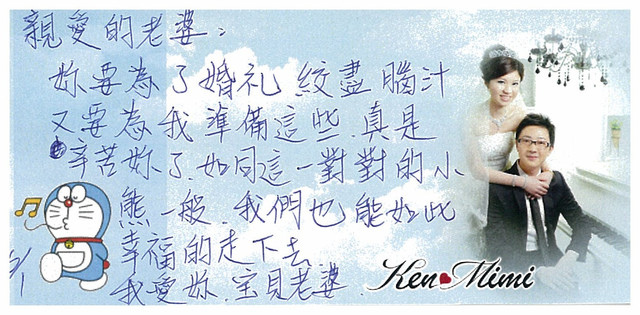 親愛的老婆：
妳要為了婚礼絞盡腦汁
又要為我準備這些.真是
辛苦妳了.如同這一對對的小
熊一般.我們也能如此
幸福的走下去
我愛妳.宝貝老婆.
Ken Mimi